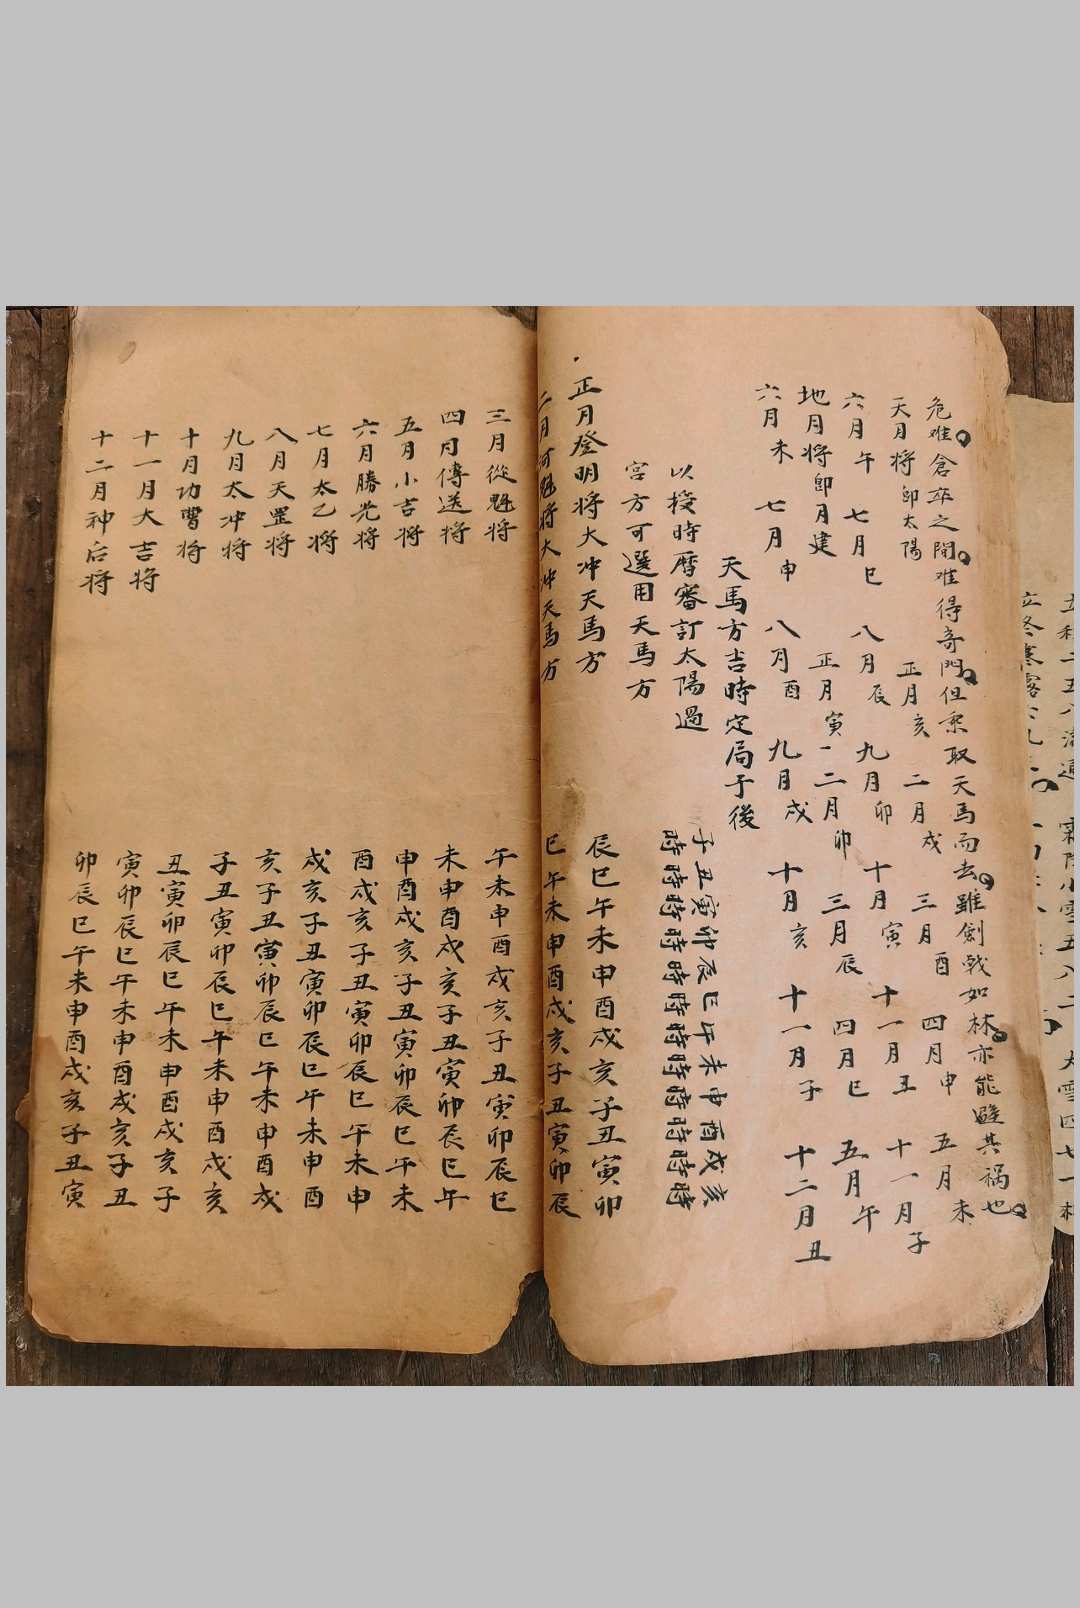 危难倉卒之間难得奇門但乘取天馬而去雖劍戟如林亦能避其禍也
天月將即太陽　正月亥　二月戌　三月酉　四月申　五月未
六月午　七月巳　八月辰　九月卯　十月寅　十一月丑　十一月子
地月將即月建　正月寅　二月卯　三月辰　四月巳　五月午
六月未　七月申　八月酉　九月戌　十月亥　十一月子　十二月丑
天馬方吉時定局于後
以授時曆審訂太陽過
宮方可選用天馬方
子丑寅卯辰巳午未申酉戌亥
時時時時時時時時時時時時
正月登明將大冲天馬方　辰巳午未申酉戌亥子丑寅卯
二月河魁將大冲天馬方　巳午未申酉戌亥子丑寅卯辰
三月從魁將　午未申酉戌亥子丑寅卯辰巳
四月傳送將　未申酉戌亥子丑寅卯辰巳午
五月小吉將　申酉戌亥子丑寅卯辰巳午未
六月勝光將　酉戌亥子丑寅卯辰巳午未申
七月太乙將　戌亥子丑寅卯辰巳午未申酉
八月天罡將　亥子丑寅卯辰巳午未申酉戌
九月太冲將　子丑寅卯辰巳午未申酉戌亥
十月功曹將　丑寅卯辰巳午未申酉戌亥子
十一月大吉將　寅卯辰巳午未申酉戌亥子丑
十二月神后將　卯辰巳午未申酉戌亥子丑寅